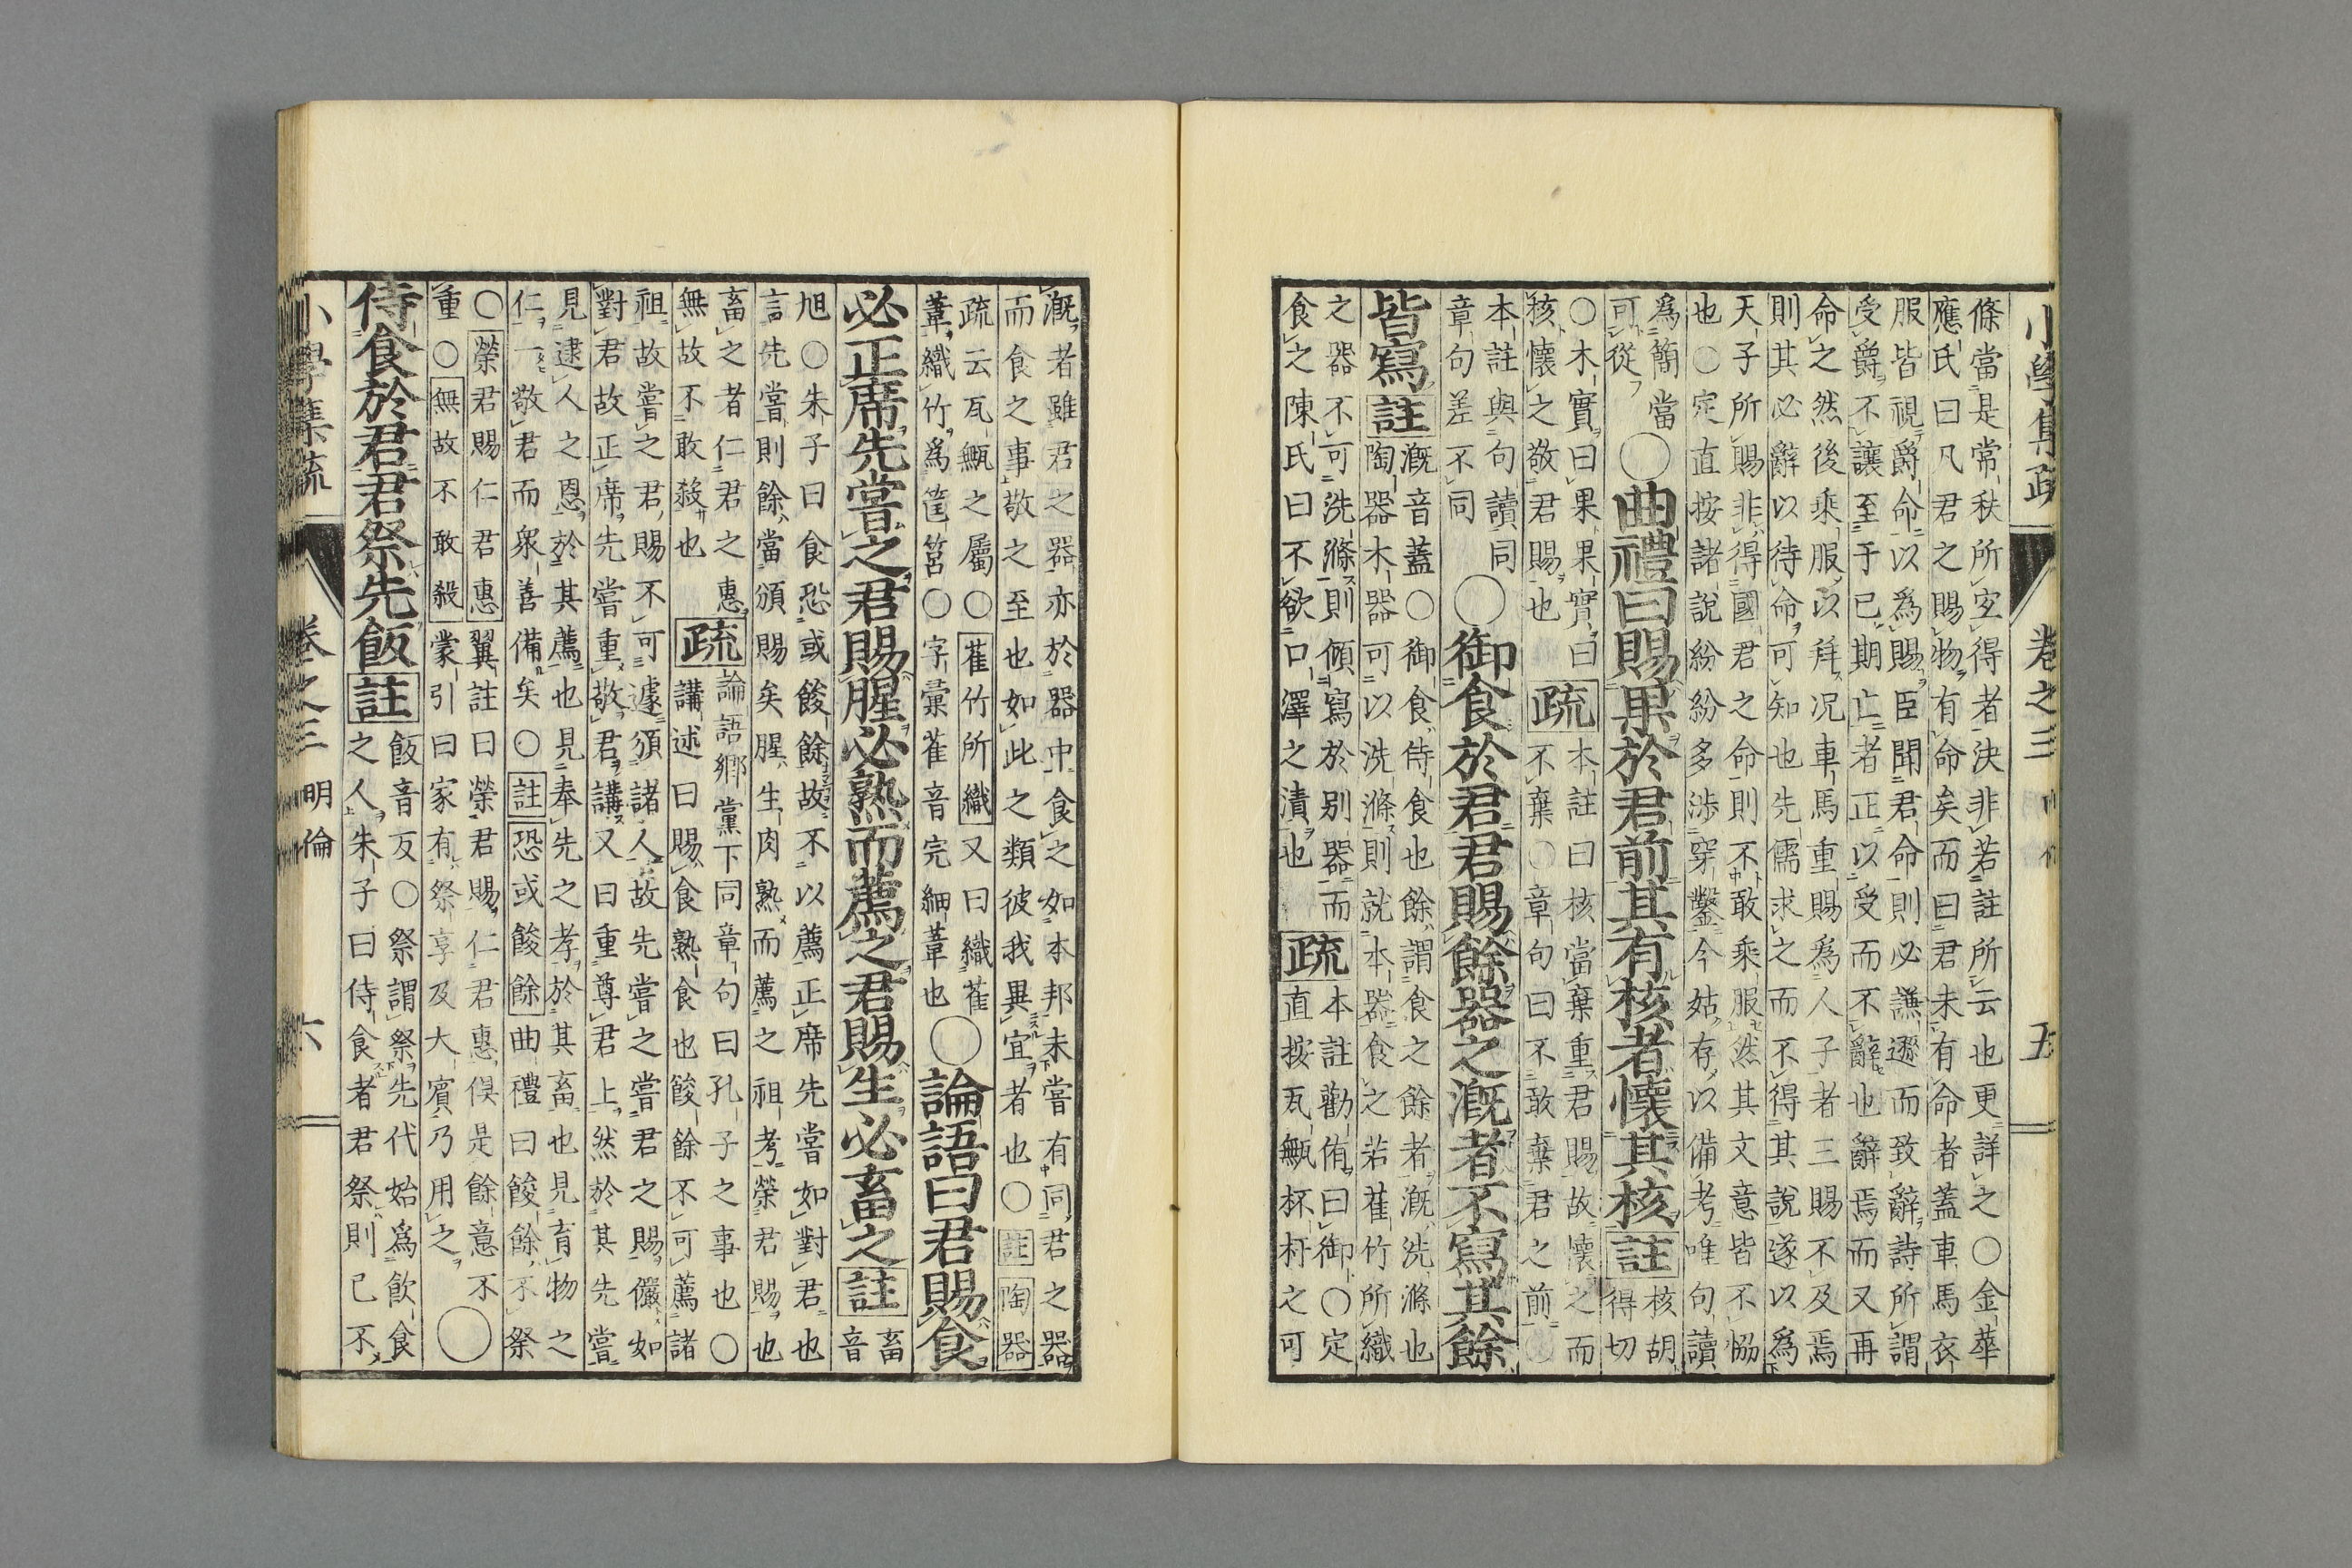 小學集疏
卷之三
五
條當是常秩所空得者決非若註所云也更詳之○金華
應氏曰凡君之賜物有命矣而曰君未有命者蓋車馬衣
服皆視爵命以為賜臣聞君命則必謙遜而致辭詩所謂
受爵不讓至于已期亡者正以受而不辭也辭焉而又再
命之然後乘服以拜況車馬重賜為人子者三賜不及焉
則其必辭以待命可知也先儒求之而不得其說遂以為
天子所賜非得國君之命則不敢乘服然其文意皆不恊
也○定直按諸說紛紛多渉穿鑿今姑存以備考唯句讀
為簡當
可從
○曲禮曰賜果於君前其有核者懷其核註
核胡
得切
○木實曰果果實曰
核懷之敬君賜也
疏
本註曰核當棄重君賜故懷之而
不棄○章句曰不敢棄君之前○
本註與句讀同
章句差不同
○御食於君君賜餘器之漑者不寫其餘
皆寫註
漑音蓋○御食侍食也餘謂食之餘者漑洗滌也
陶器木器可以洗滌則就本器食之若萑竹所織
之器不可洗滌則傾寫於别器而
食之陳氏曰不欲口澤之瀆也
疏
本註勸侑曰御○定
直按瓦甒杯杅之可
漑者雖君之器亦於器中食之如本邦未嘗有同君之器
而食之事敬之至也如此之類彼我異宜者也○註陶器
疏云瓦甒之屬○萑竹所織又曰織萑
葦織竹為筐筥○字彙萑音完細葦也
○論語曰君賜食
必正席先嘗之君賜腥必熟而薦之君賜生必畜之註
畜
音
旭○朱子曰食恐或餕餘故不以薦正席先嘗如對君也
言先嘗則餘當頒賜矣腥生肉熟而薦之祖考榮君賜也
畜之者仁君之惠
無故不敢殺也
疏
論語郷黨下同章句曰孔子之事也○
講述曰賜食熟食也餕餘不可薦諸
祖故嘗之君賜不可遽頒諸人故先嘗之嘗君之賜儼如
對君故正席先嘗重敬君講又曰重尊君上然於其先嘗
見逮人之恩於其薦也見奉先之孝於其畜也見育物之
仁一敬君而衆善備矣○註恐或餕餘曲禮曰餕餘不祭
○榮君賜仁君惠翼註曰榮君賜仁君惠俱是餘意不
重○無故不敢殺蒙引曰家有祭享及大賓乃用之
○
侍食於君君祭先飯註
飯音反○祭謂祭先代始為飲食
之人朱子曰侍食者君祭則已不
小學集疏
卷之三
明倫
六